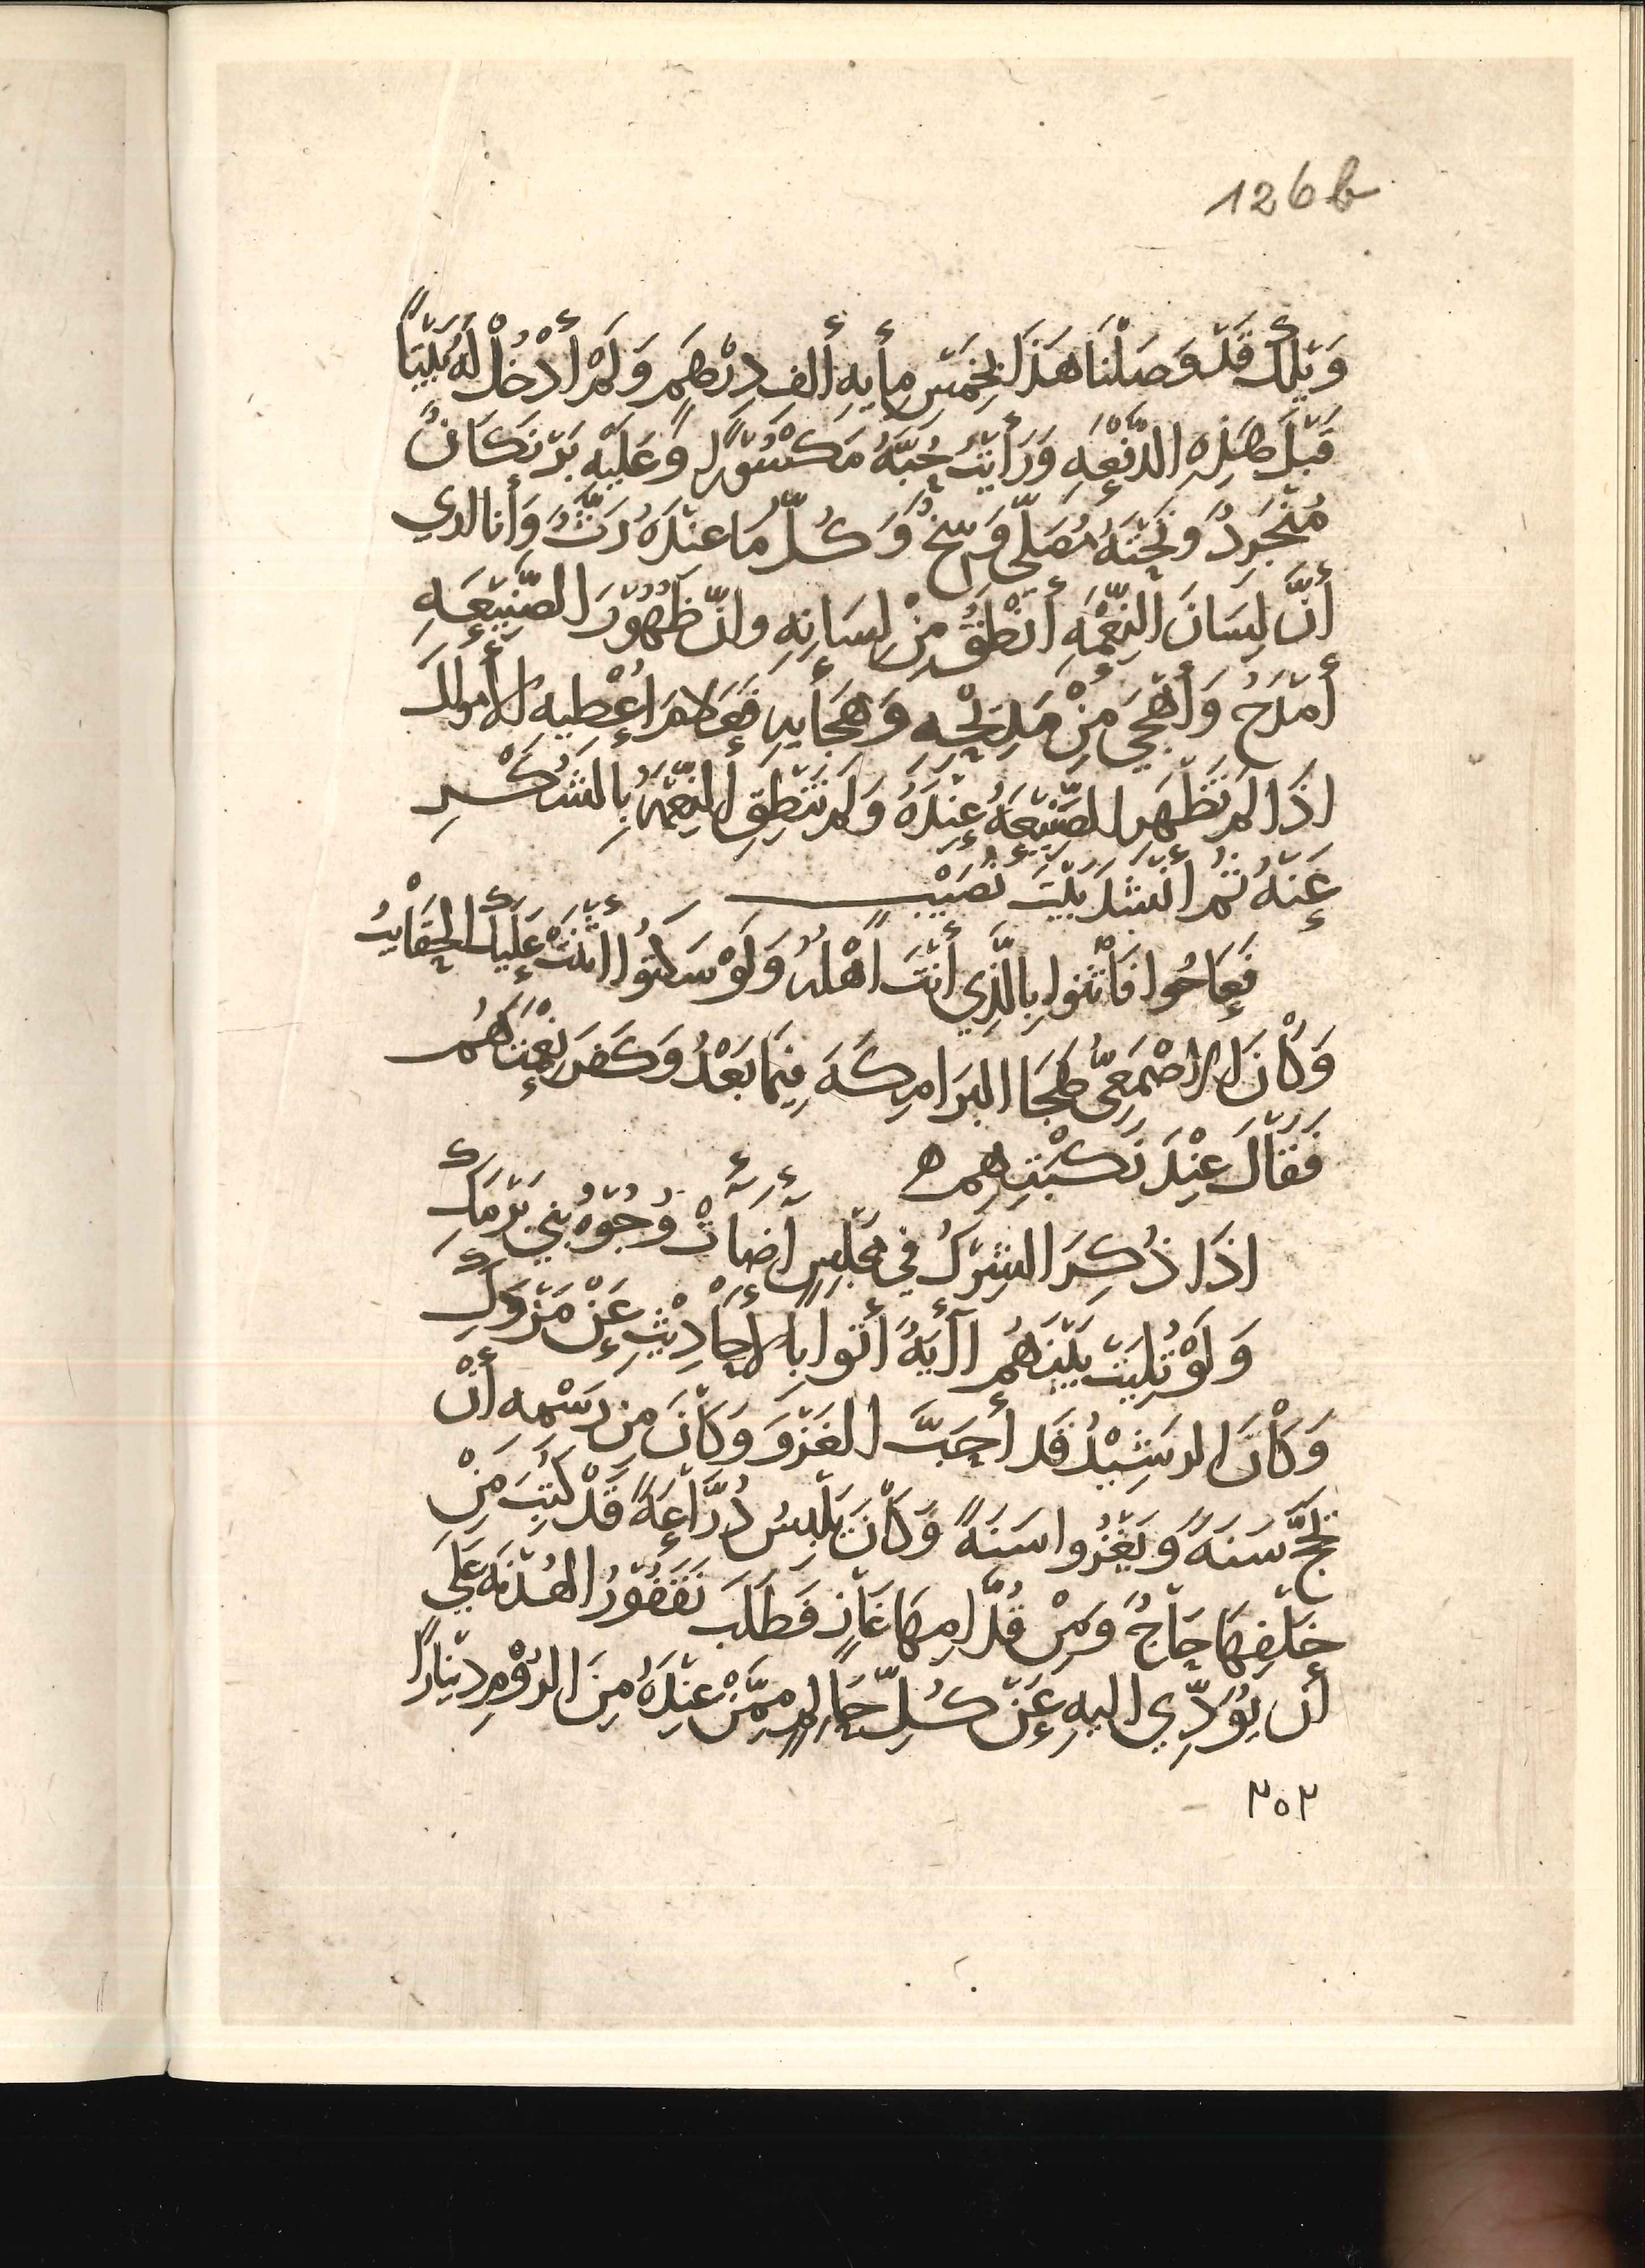 126b
وَيْلَكَ قَدْ وَصَلْنَا هَذَا بِخَمْسِ مِأيةِ أَلفِ دِرْهَمٍ وَلَمْ أَدْخُلْ لَهُ بَيْتًا
قَبْلَ هَذِهِ الدَّفْعَةِ وَرَأَيْتُ حُبَّهُ مَكْسُوْرًا وَعَلَيْهِ بَرْنَكَانٌ
مُنْجَرِدٌ وَتَحْتَهُ مُصَلًّى وَسِخٌ وَكُلُّ مَا عِنْدَهُ رَثٌّ وَأَنا اري
أَنَّ لِسَانَ النِّعْمَةِ أَنْطَقُ مِنْ لِسَانِهِ وانَّ ظُهُوْرَ الصَّنِيْعَةِ
أَمْدَحُ وَأَهْجَى مِنْ مَدِيْحِهِ وَهِجَأيهِ فَعَلامَ اعْطِيهِ الأَموالَ
اذَا لم تَظْهَرِ الصَّنِيْعَةُ عِنْدَهُ وَلم تَنْطِقِ النِّعْمَةُ بِالشُكْرِ
عَنْهُ ثمَّ أَنْشَدَ بَيْتَ نُصَيْبٍ
فَعَاجُوا فَأَثْنَوا بِالَّذِي أَنْتَ أَهْلُهُ وَلَوْ سَكَتُوا أَثْنَتْ عَلَيْكَ الحَقَايبُ
وَكَانَ الاصْمَعِيُّ هَجَا البَرَامِكَةَ فِيْمَا بَعْدُ وَكَفَرَ نِعْمَتَهُم
فَقَالَ عِنْدَ نَكْبَتِهِم ه
اذَا ذُكِرَ الشِرْكُ في مَجْلِسٍ أَضَأَتْ وُجُوْهُ بَنِي بَرْمَكِ
وَلَوْ تُلِيَتْ بَيْنَهُم آيَةٌ أَتَوا بِالأَحَادِيْثِ عَنْ مَزْوَكِ
وَكَانَ الرشِيْدُ قَد أَحَبَّ الغَزْوَ وَكَانَ مِن رَسْمِهِ أَنْ
يحُجَّ سَنَةً وَيَغْزُوا سَنَةً وَكَانَ يَلْبِسُ دُرَّاعَةً قَدْ كُتِبَ مِنْ
خَلْفِهَا حَاجٌّ وَمِنْ قُدَّامِهَا غَازٍ فَطَلَبَ نَقْفُوْرُ الهُدْنَةَ عَلَى
أَن يُوَدِّي اليهِ عَنْ كُلِّ حَالِمٍ مِمَّنْ عِنْدَهُ مِنَ الرُوْمِ دِيْنَارًا
٢٥٢